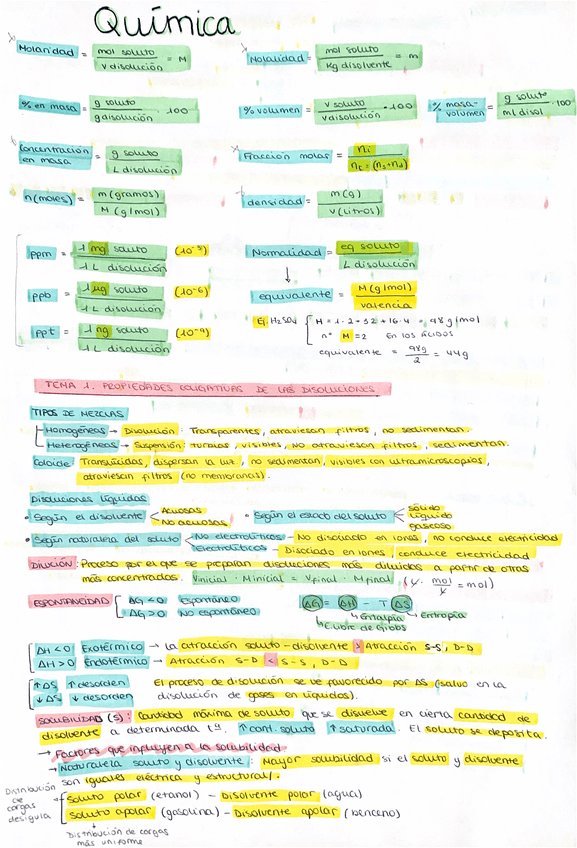 Química
Molaridad = mol soluto / V disolución = M
Molalidad = mol soluto / Kg disolvente = m
% en masa = g soluto / g disolución · 100
% volumen = V soluto / V disolución · 100
% masa-volumen = g soluto / ml disol · 100
Concentración en masa = g soluto / L disolución
Fracción molar = ni / nt = (ns+nd)
n (moles) = m (gramos) / M (g/mol)
densidad = m (g) / v (litros)
ppm = 1 mg soluto / 1 L disolución (10⁻³)
ppb = 1 μg soluto / 1 L disolución (10⁻⁶)
ppt = 1 ng soluto / 1 L disolución (10⁻⁹)
Normalidad = eq soluto / L disolución
↓
equivalente = M (g/mol) / valencia
Ej. H₂SO₄ { M = 1·2 + 32 + 16·4 = 98 g/mol
nº M = 2 En los ácidos
equivalente = 98g / 2 = 49g
TEMA 1. PROPIEDADES COLIGATIVAS DE LAS DISOLUCIONES
TIPOS DE MEZCLAS
Homogéneas → Disolución: Transparentes, atraviesan filtros, no sedimentan.
Heterogéneas → Suspensión: turbias, visibles, no atraviesan filtros, sedimentan.
Coloide: Translúcidas, dispersan la luz, no sedimentan, visibles con ultramicroscopios,
atraviesan filtros (no membranas).
Disoluciones líquidas
• Según el disolvente < Acuosas
No acuosas
• Según el estado del soluto < sólido
líquido
gaseoso
• Según naturaleza del soluto < No electrolíticos - No disociado en iones, no conduce electricidad
Electrolíticos - Disociado en iones, conduce electricidad
DILUCIÓN: Proceso por el que se preparan disoluciones más diluidos a partir de otras
más concentrados. Vinicial · Minicial = Vfinal · Mfinal (L · mol/L = mol)
ESPONTANEIDAD [ ΔG < 0 Espontáneo
ΔG > 0 No espontáneo
ΔG = ΔH - T ΔS
↳ Entalpía
↳ Entropía
↳ E. libre de Gibbs
ΔH < 0 Exotérmico → La atracción soluto - disolvente > Atracción S-S, D-D
ΔH > 0 Endotérmico → Atracción S-D < S-S, D-D
↑ΔS ↑desorden
↓ΔS ↓desorden
El proceso de disolución se ve favorecido por ΔS (salvo en la
disolución de gases en líquidos).
SOLUBILIDAD (S): Cantidad máxima de soluto que se disuelve en cierta cantidad de
disolvente a determinada tª. ↑cant. soluto ↑saturada. El soluto se deposita.
→ Factores que influyen a la solubilidad
→ Naturaleza soluto y disolvente: Mayor solubilidad si el soluto y disolvente
son iguales eléctrica y estructural/.
Distribución de cargas desigual
Soluto polar (etanol) - Disolvente polar (agua)
Soluto apolar (gasolina) - Disolvente apolar (benceno)
↓
Distribución de cargas
más uniforme